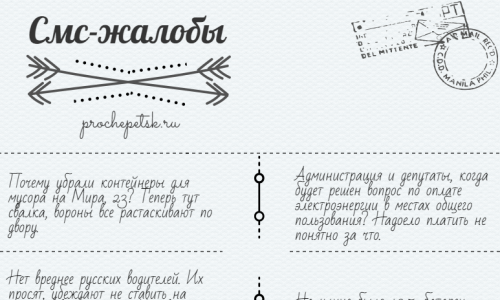 Смс-жалобы
prochepetsk.ru
DEL MITTENTE
AIR MAIL REC'D
MANILA PHIL.
Почему убрали контейнеры для
мусора на Мира, 23? Теперь тут
свалка, вороны все растаскивают по
двору.
Администрация и депутаты, когда
будет решен вопрос по оплате
электроэнергии в местах общего
пользования? Надоело платить не
понятно за что.
Нет вреднее русских водителей. Их
просят, убеждают не ставить на